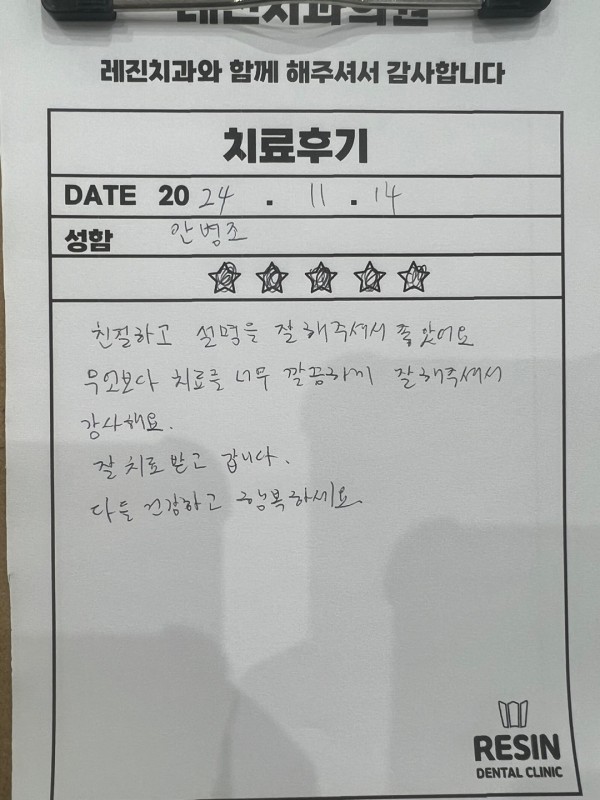 레진치과의원
레진치과와 함께 해주셔서 감사합니다
치료후기
DATE 20 24 . 11 . 14
성함 안병조
친절하고 설명을 잘해주셔서 좋았어요
무엇보다 치료를 너무 깔끔하게 잘해주셔서
감사해요.
잘 치료 받고 갑니다.
다들 건강하고 행복하세요.
RESIN
DENTAL CLINIC